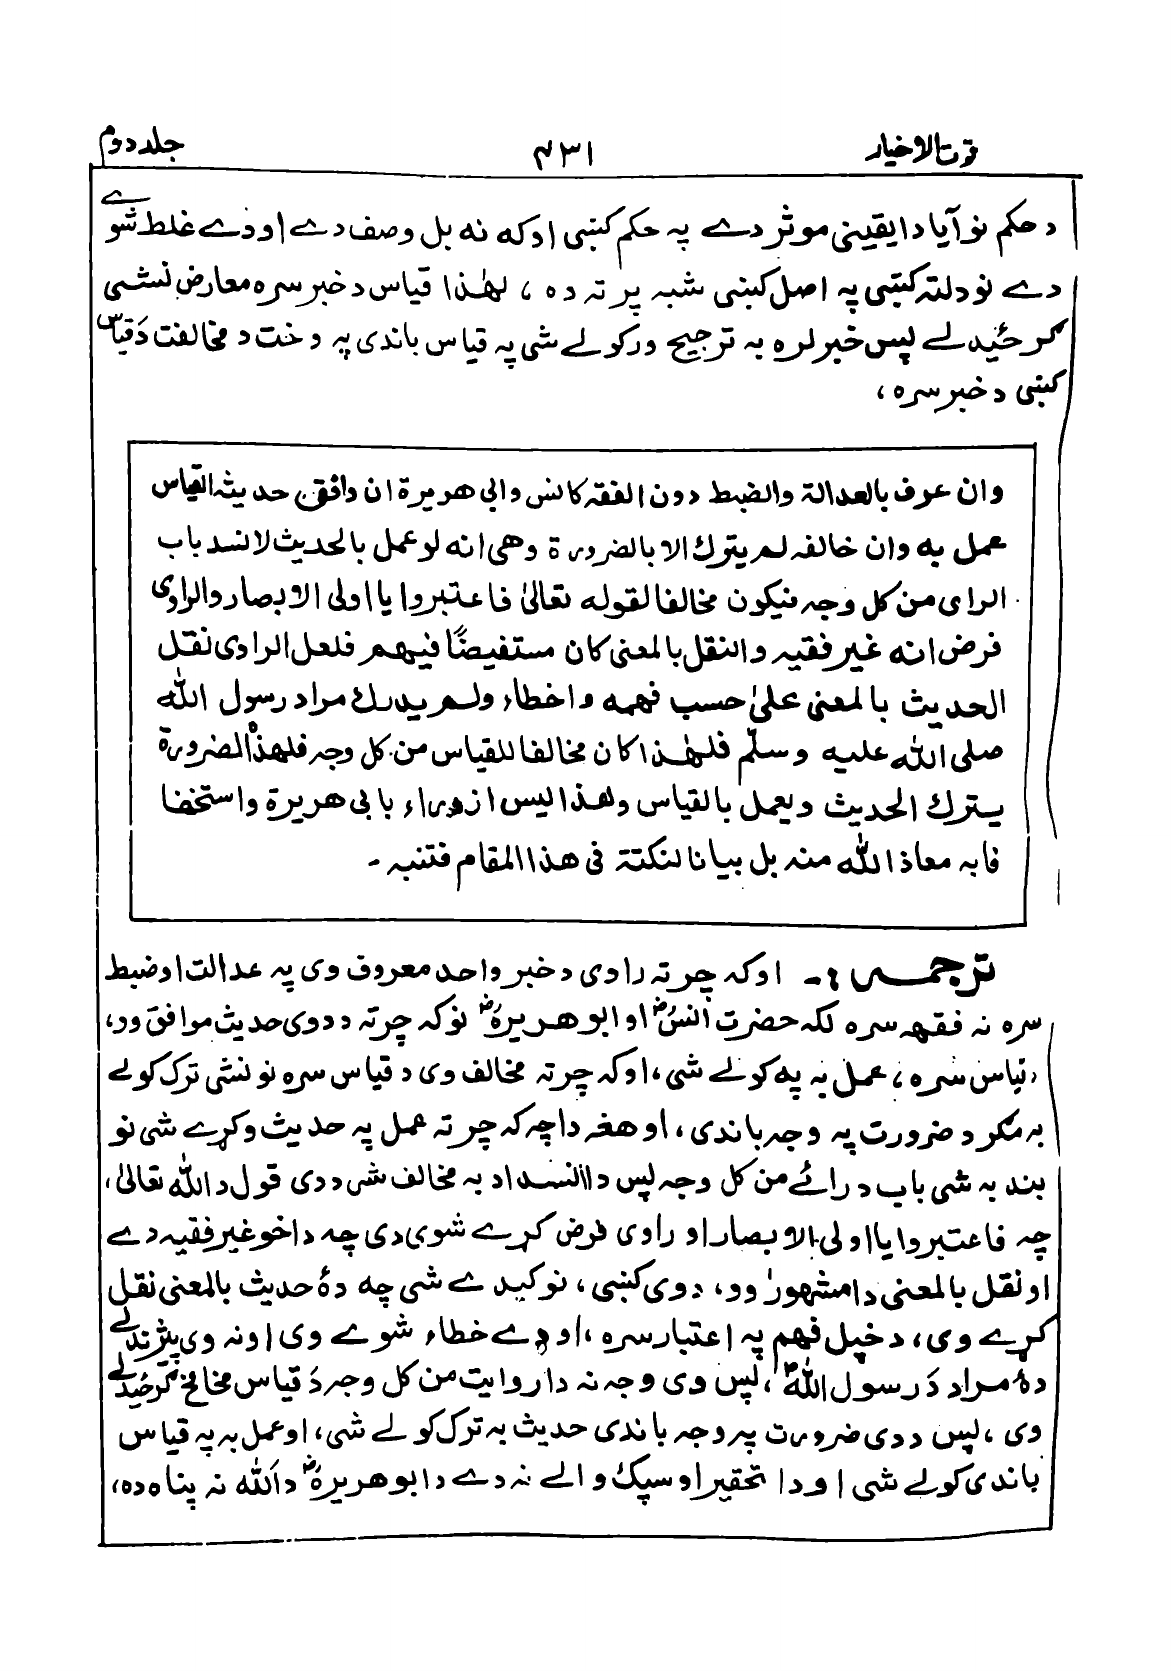 قرت الاخیار
۴۳۱
جلد دوم
د حکم نو آیا دا یقینی موثر دے په حکم کښی او که نه بل وصف دے او دے غلط شوے
دے نو دلته کښی په اصل کښی شبه پرته ده ، لهٰذا قیاس د خبر سره معارض نسشی
کرځیدلے پس خبر لره به ترجیح ورکولے شی په قیاس باندی په وخت د مخالفت دَ قیاس
کښی د خبر سره ،
وان عرف بالعدالة والضبط دون الفقه کانس وابی هریرة ان وافق حدیثه القیاس
عمل به وان خالفه لم یترك الا بالضرورة وهی انه لو عمل بالحدیث لانسد باب
الرای من کل وجه فیکون مخالفا لقوله تعالیٰ فاعتبروا یا اولی الابصار والراوی
فرض انه غیر فقیه والنقل بالمعنی کان مستفیضًا فیهم فلعل الراوی نقل
الحدیث بالمعنی علیٰ حسب فهمه واخطاء ولم یدرك مراد رسول الله
صلی الله علیه وسلّم فلهٰذا کان مخالفا للقیاس من کل وجه فلهذه الضرورة
یترك الحدیث ویعمل بالقیاس وهذا لیس ازدراء بابی هریرة واستخفا
فابه معاذ الله منه بل بیانا لنکتة فی هذا المقام فتنبه ۔
ترجمه :۔ او که چرته راوی د خبر واحد معروف وی په عدالت او ضبط
سره نه فقهه سره لکه حضرت انسؓ او ابو هریرهؓ نو که چرته د دوی حدیث موافق ور،
د قیاس سره ، عمل به په کولے شی، او که چرته مخالف وی د قیاس سره نو نشی ترک کولے
به مکر د ضرورت په وجه باندی ، او هغه دا چه که چرته عمل په حدیث وکړے شی نو
بند به شی باب د رائے من کل وجه پس دا انسداد به مخالف شی د دی قول د الله تعالیٰ،
چه فاعتبروا یا اولی الابصار او راوی فرض کړے شوی دی چه دا خو غیر فقیه دے
او نقل بالمعنی دا مشهور وو، د دوی کښی ، نو کیدے شی چه دهٔ حدیث بالمعنی نقل
کړے وی، د خپل فهم په اعتبار سره ، او دے خطاء شوے وی او نه وی پیژندلے
دهٔ مراد دَ رسول اللهؐ ، پس وی وجه نه دا روایت من کل وجه دَ قیاس مخالف کرځیدلے
وی ، پس د دی ضرورت په وجه باندی حدیث به ترک کولے شی، او عمل به په قیاس
باندی کولے شی او دا تحقیر او سپک والے نه دے د ابو هریرهؓ د الله نه پناه ده،